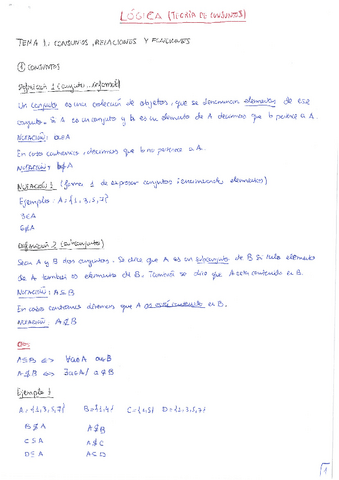 LÓGICA (TEORÍA DE CONJUNTOS)
TEMA 1: CONJUNTOS, RELACIONES Y FUNCIONES
① CONJUNTOS
Definición 1 (conjunto, informal)
Un conjunto es una colección de objetos, que se denominan elementos de ese
conjunto. Si A es un conjunto y b es un elemento de A decimos que b pertenece a A.
NOTACIÓN: b∈A
En caso contrario, decimos que b no pertenece a A.
NOTACIÓN: b∉A
NOTACIÓN: (forma 1 de expresar conjuntos: enumerando elementos)
Ejemplos: A={1,3,5,7}
3∈A
6∉A
Definición 2 (subconjunto)
Sean A y B dos conjuntos. Se dice que A es un subconjunto de B si todo elemento
de A también es elemento de B. También se dice que A está contenido en B.
NOTACIÓN: A⊆B
En caso contrario diremos que A no está contenido en B.
NOTACIÓN: A⊈B
A⊆B ⇔ ∀a∈A a∈B
A⊈B ⇔ ∃a∈A/ a∉B
Ejemplo:
A={1,3,5,7} B={1,4} C={1,5} D={1,3,5,7}
B⊈A A⊈B
C⊆A A⊈C
D⊆A A⊆D
1